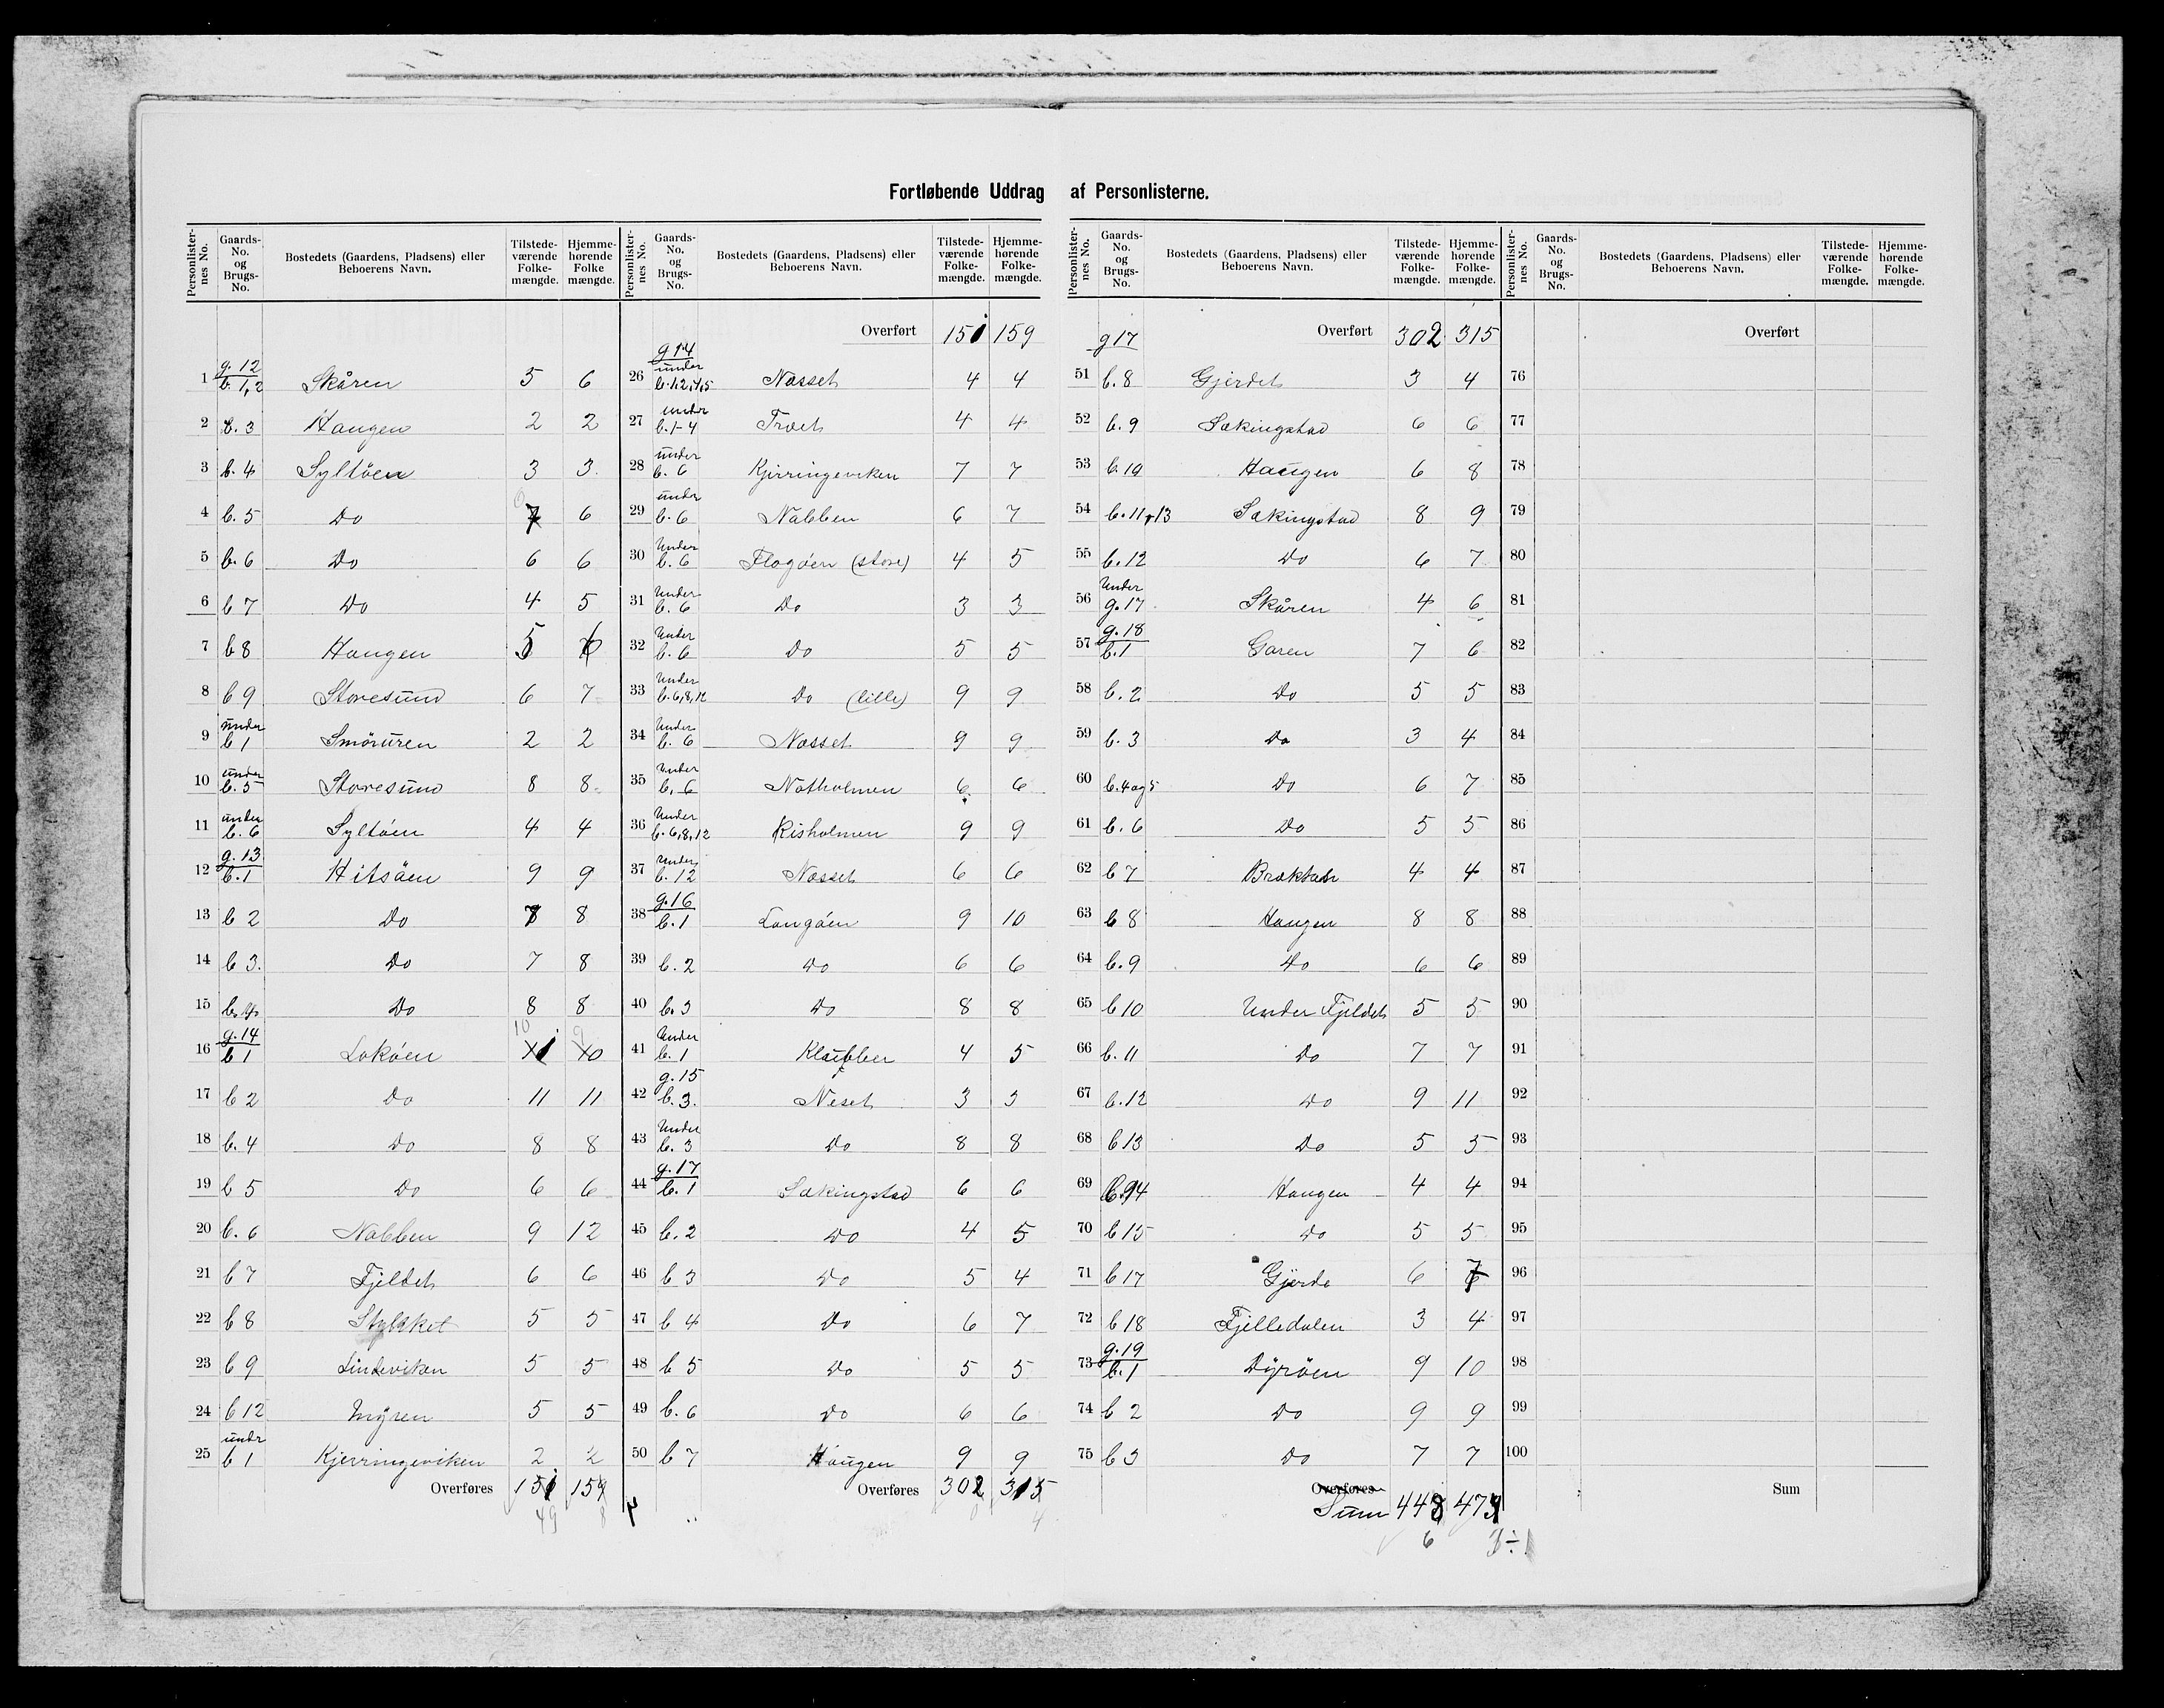 Fortløbende Uddrag af Personlisterne.
Personlister-nes No. | Gaards-No. og Brugs-No. | Bostedets (Gaardens, Pladsens) eller Beboerens Navn. | Tilstede-værende Folke-mængde. | Hjemme-hørende Folke mængde.
1 g. 12 b. 1,2 Skåren 5 6
2 b. 3 Haugen 2 2
3 b. 4 Syltöen 3 3
4 b. 5 Do 7 6
5 b. 6 Do 6 6
6 b 7 Do 4 5
7 b 8 Haugen 5 6
8 b 9 Storesund 6 7
9 under b 1 Smöruren 2 2
10 under b. 5 Storesund 8 8
11 under b. 6 Syltöen 4 4
12 g. 13 b. 1 Hitsöen 9 9
13 b 2 Do 7 8
14 b 3. Do 7 8
15 b. 4 Do 8 8
16 g. 14 b 1 Loköen 10 9
17 b 2 Do 11 11
18 b. 4 Do 8 8
19 b 5 Do 6 6
20 b. 6 Nabben 9 12
21 b 7 Fjeldet 6 6
22 b 8 Stykket 5 5
23 b 9 Lindeviken 5 5
24 b 12 Myren 5 5
25 undr b 1 Kjerringeviken 2 2
Overføres 151 159
49 8
Personlister-nes No. | Gaards-No. og Brugs-No. | Bostedets (Gaardens, Pladsens) eller Beboerens Navn. | Tilstede-værende Folke-mængde. | Hjemme-hørende Folke-mængde.
Overført 151 159
26 g 14 under b. 1,2,4,5 Nasset 4 4
27 under b. 1-4 Træet 4 4
28 under b. 6 Kjerringeviken 7 7
29 undr b. 6 Nabben 6 7
30 Under b. 6 Flogöen (store) 4 5
31 Under b. 6 Do 3 3
32 Under b. 6 Do 5 5
33 Under b. 6,8,12 Do (lille) 9 9
34 Under b. 6 Nasset 9 9
35 Under b. 6 Notholmen 6 6
36 Under b. 6,8,12 Risholmen 9 9
37 Under b. 12 Nasset 6 6
38 g. 16 b. 1 Langöen 9 10
39 b. 2 Do 6 6
40 b. 3 Do 8 8
41 Under b. 1 Klubben 4 5
42 g. 15 b. 3. Neset 3 3
43 Under b. 3 Do 8 8
44 g. 17 b. 1 Sækingstad 6 6
45 b. 2 Do 4 5
46 b 3 Do 5 4
47 b 4 Do 6 7
48 b 5 Do 5 5
49 b. 6 Do 6 6
50 b 7 Haugen 9 9
Overføres 302 315
0 4
Personlister-nes No. | Gaards-No. og Brugs-No. | Bostedets (Gaardens, Pladsens) eller Beboerens Navn. | Tilstede-værende Folke-mængde. | Hjemme-hørende Folke-mængde.
g 17 Overført 302 315
51 b. 8 Gjerdet 3 4
52 b. 9 Sækingstad 6 6
53 b. 10 Haugen 6 8
54 b. 11, 13 Sækingstad 8 9
55 b. 12 Do 6 7
56 Under g. 17 Skåren 4 6
57 g. 18 b. 1 Garen 7 6
58 b. 2 Do 5 5
59 b. 3 Do 3 4
60 b. 4 og 5 Do 6 7
61 b. 6 Do 5 5
62 b 7 4 4
63 b 8 Haugen 8 8
64 b. 9 Do 6 6
65 b 10 Under Fjeldet 5 5
66 b. 11 Do 7 7
67 b. 12 Do 9 11
68 b 13 Do 5 5
69 b. 14 Haugen 4 4
70 b 15 Do 5 5
71 b 17 Gjerde 6 7
72 b 18 Fjelledalen 3 4
73 g. 19 b. 1 Dyröen 9 10
74 b 2 Do 9 9
75 b 3 Do 7 7
Overføres
Sum 448
6 3÷1
Personlister-nes No. | Gaards-No. og Brugs-No. | Bostedets (Gaardens, Pladsens) eller Beboerens Navn. | Tilstede-værende Folke-mængde. | Hjemme-hørende Folke-mængde.
Overført
76
77
78
79
80
81
82
83
84
85
86
87
88
89
90
91
92
93
94
95
96
97
98
99
100
Sum